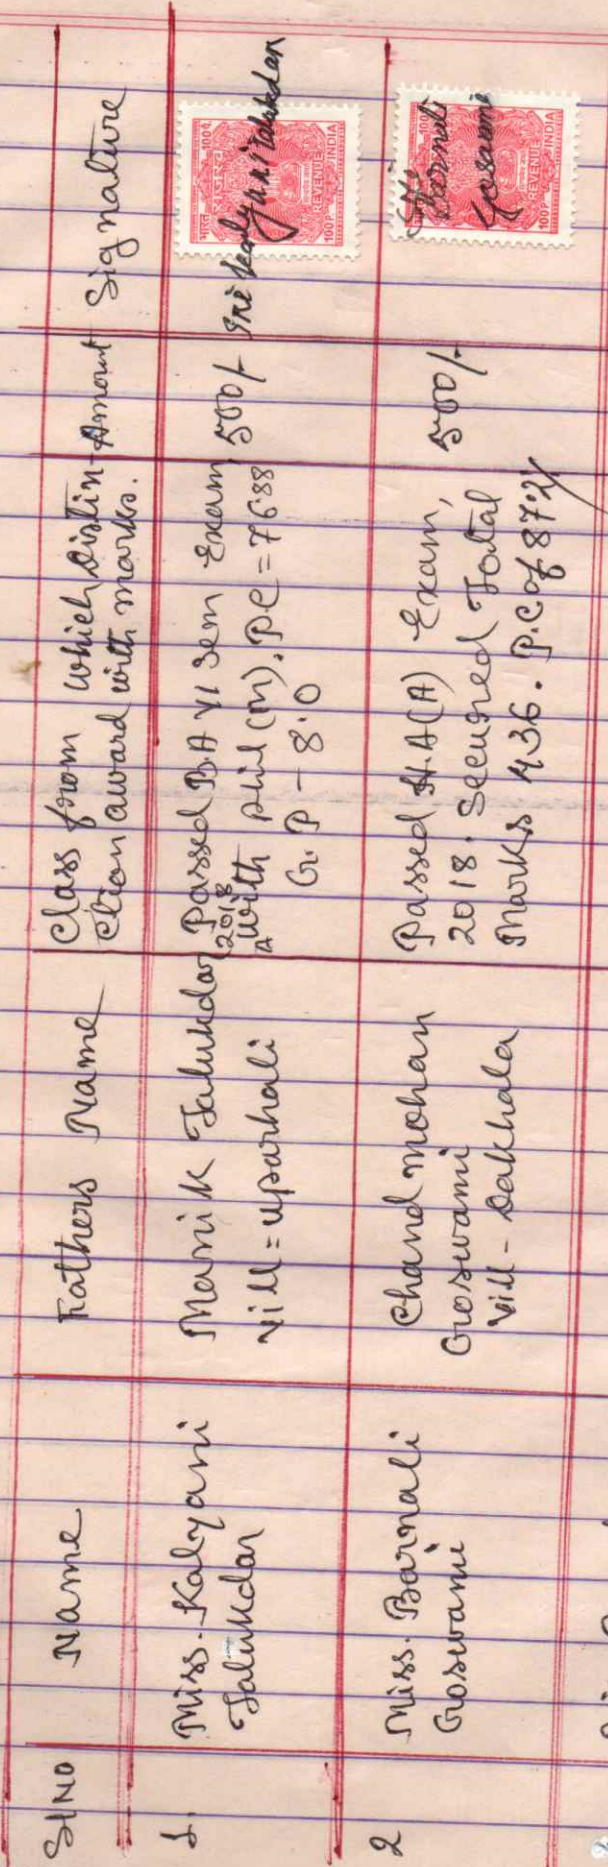 Sl No
Name
Fathers Name
Class from which Distin-
ction award with marks.
Amount
Signature
1.
Miss. Kalyani
Talukdar
Manik Talukdar
Vill = Uparhali
Passed B.A VI Sem Exam,
2018
with Phil (M). PC = 76.88
G.P - 8.0
500/-
भारत 100 प.
REVENUE INDIA
100P
Sri Kalyani Talukdar
2
Miss. Barnali
Goswami
Chand mohan
Goswami
Vill - Dakhala
Passed H.A(A) Exam,
2018. Secured Total
Marks 436. P.C of 87.2%
500/-
REVENUE INDIA
100P
Barnali
Gosaomi